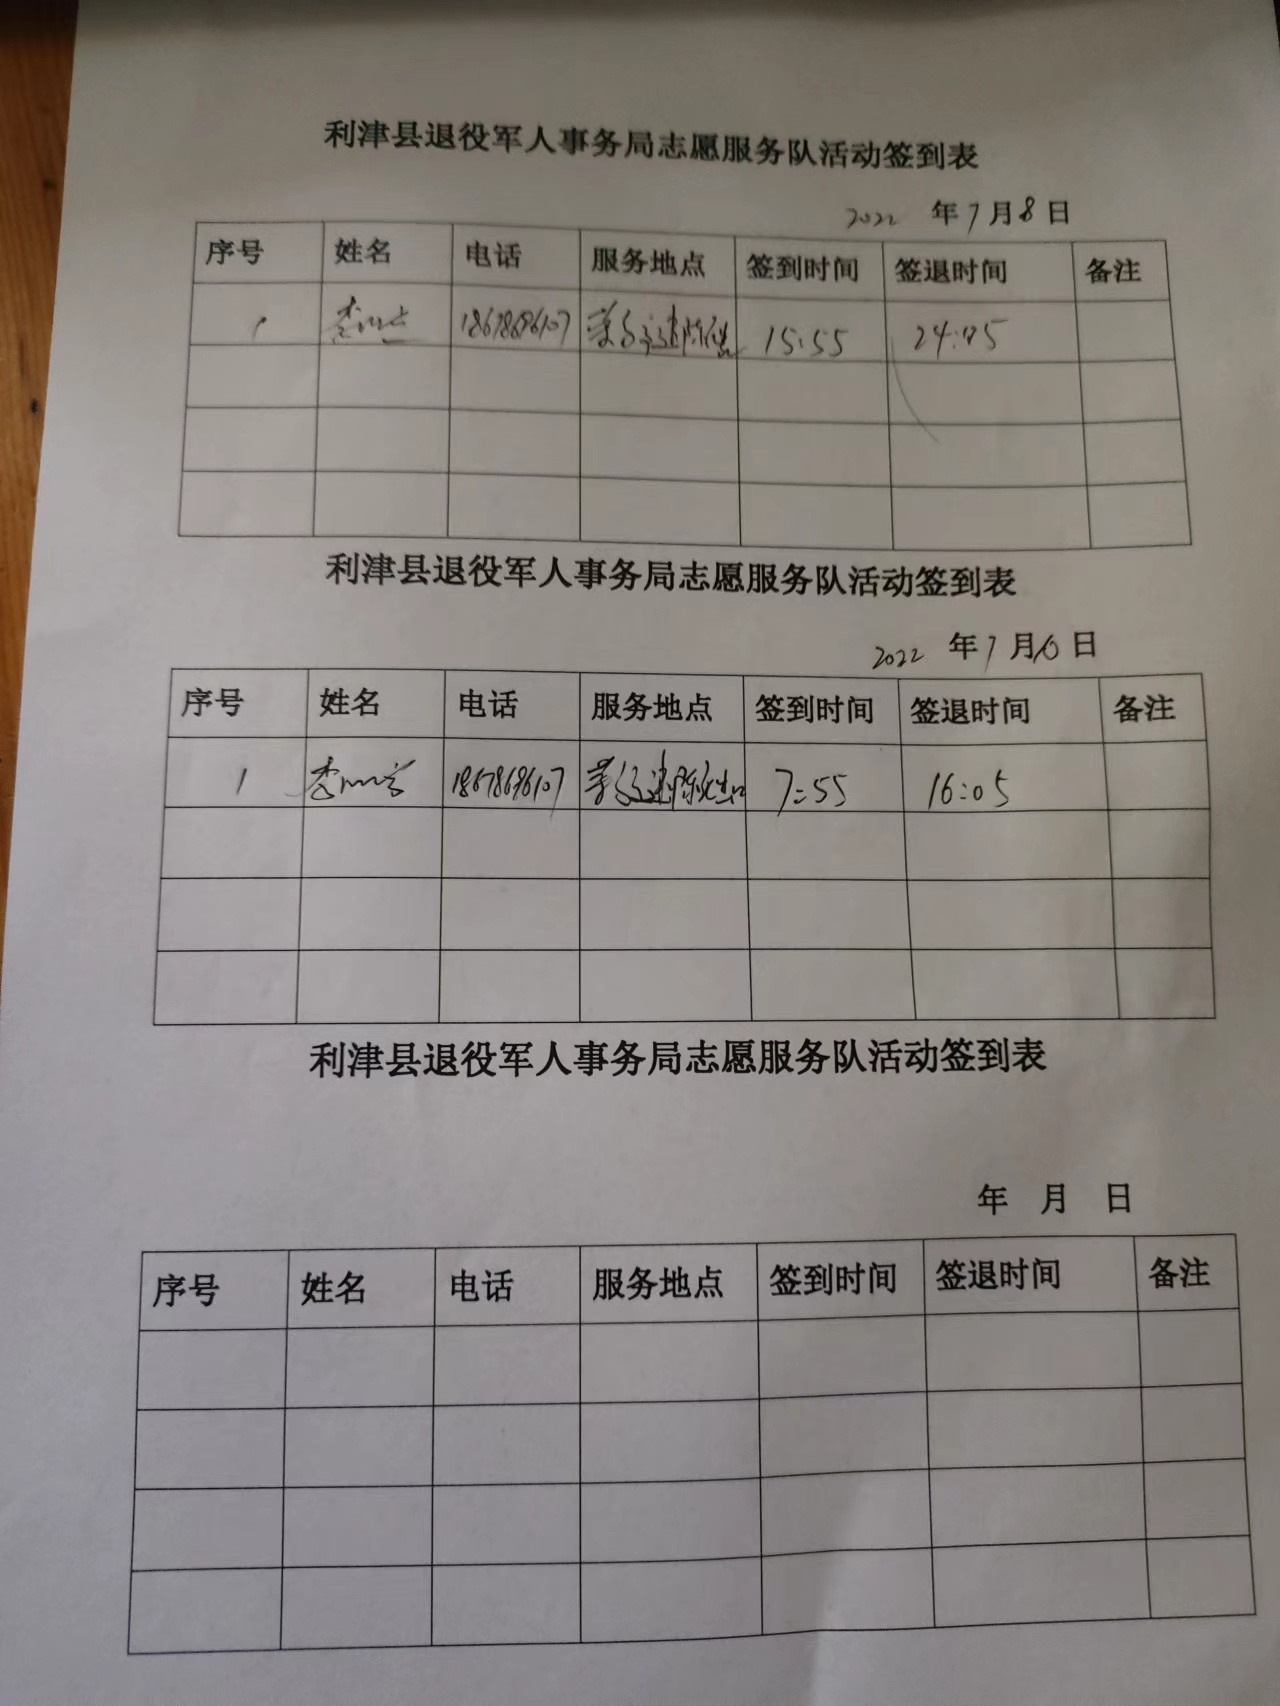 利津县退役军人事务局志愿服务队活动签到表
2022 年7月8日
序号 姓名 电话 服务地点 签到时间 签退时间 备注
1 李 18678686107 15:55 24:05
利津县退役军人事务局志愿服务队活动签到表
2022 年7月10日
序号 姓名 电话 服务地点 签到时间 签退时间 备注
1 李 18678686107 7:55 16:05
利津县退役军人事务局志愿服务队活动签到表
年 月 日
序号 姓名 电话 服务地点 签到时间 签退时间 备注